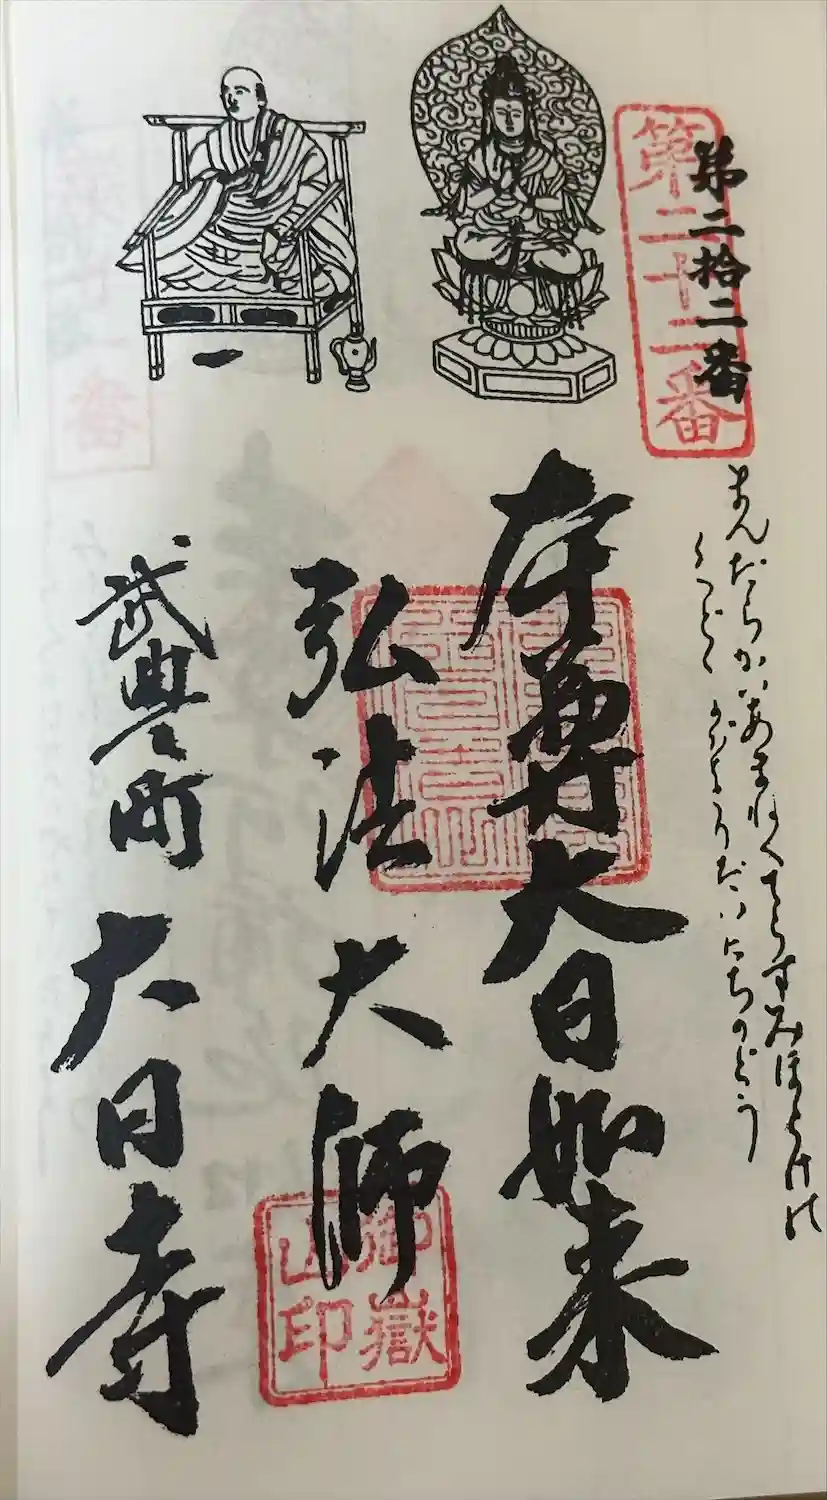 第二拾二番
第二十二番
まんだらかいあまねくてらすみほとけの
だいにちのどう
本尊大日如来
弘法大師
御嶽山印
武豊町 大日寺